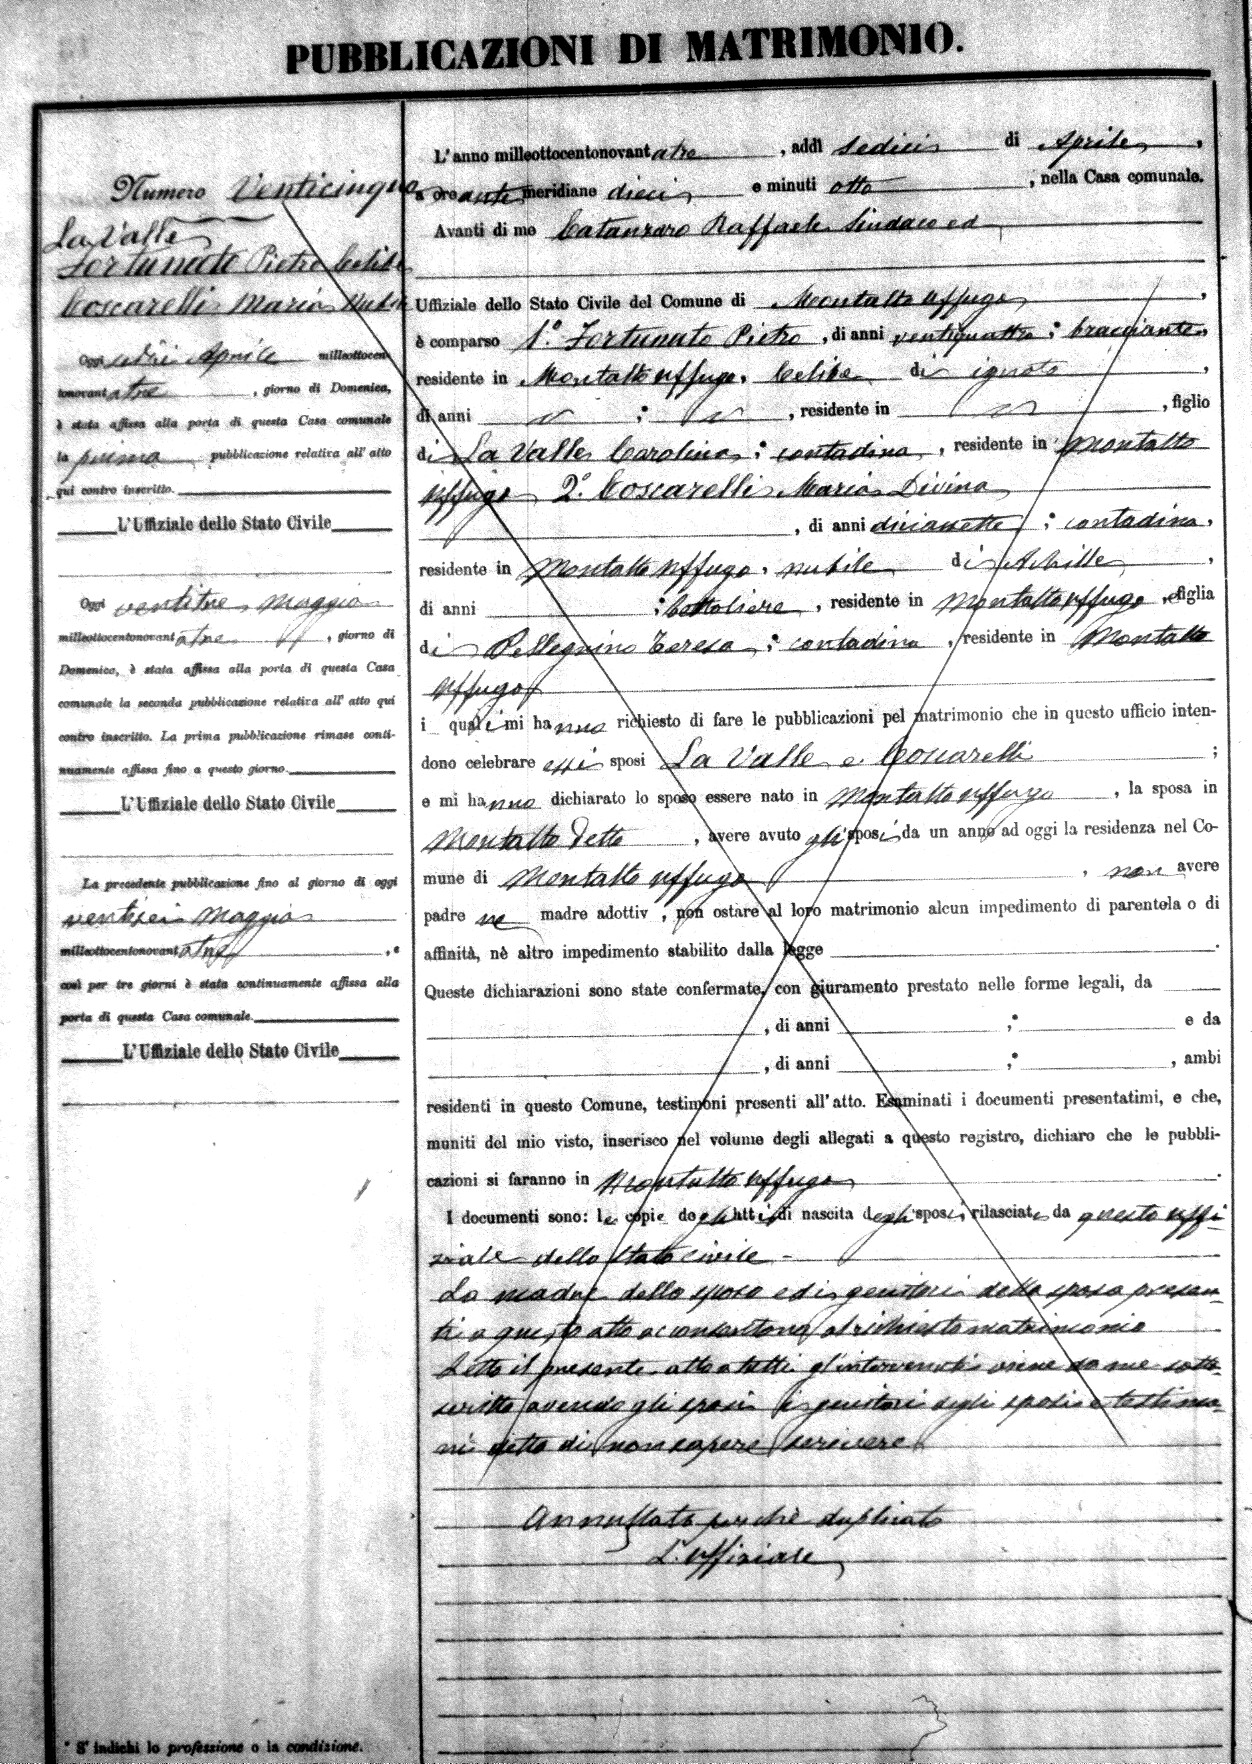 PUBBLICAZIONI DI MATRIMONIO.
Numero Venticinque
La Valle
Fortunato Pietro Celibe
Coscarelli Maria Nubile
Oggi sedici Aprile milleottocen-
tonovantatre, giorno di Domenica,
è stata affissa alla porta di questa Casa comunale
la prima pubblicazione relativa all' atto
qui contro inscritto.
L'Uffiziale dello Stato Civile
Oggi ventitre Maggio
milleottocentonovantatre, giorno di
Domenica, è stata affissa alla porta di questa Casa
comunale la seconda pubblicazione relativa all' atto qui
contro inscritto. La prima pubblicazione rimase conti-
nuamente affissa fino a questo giorno.
L'Uffiziale dello Stato Civile
La precedente pubblicazione fino al giorno di oggi
ventisei Maggio
milleottocentonovantatre, e
così per tre giorni è stata continuamente affissa alla
porta di questa Casa comunale.
L'Uffiziale dello Stato Civile
* S' indichi lo professione o la condizione.
L'anno milleottocentonovantatre, addì sedici di Aprile,
a ore antimeridiane dieci e minuti otto, nella Casa comunale.
Avanti di me Catanzaro Raffaele Sindaco ed
Uffiziale dello Stato Civile del Comune di Montalto Uffugo,
è comparso 1.° Fortunato Pietro, di anni ventiquattro; bracciante,
residente in Montalto Uffugo, Celibe di ignoto,
di anni ; , residente in , figlio
di La Valle Carolina; contadina, residente in Montalto
Uffugo 2.° Coscarelli Maria Divina
, di anni diciassette; contadina,
residente in Montalto Uffugo, nubile di Achille,
di anni ; Bottoliere, residente in Montalto Uffugo, e figlia
di Pellegrino Teresa; contadina, residente in Montalto
Uffugo
i quali mi hanno richiesto di fare le pubblicazioni pel matrimonio che in questo ufficio inten-
dono celebrare essi sposi La Valle e Coscarelli;
e mi hanno dichiarato lo sposo essere nato in Montalto Uffugo, la sposa in
Montalto detto, avere avuto gli sposi da un anno ad oggi la residenza nel Co-
mune di Montalto Uffugo, non avere
padre ne madre adottiv , non ostare al loro matrimonio alcun impedimento di parentela o di
affinità, nè altro impedimento stabilito dalla legge.
Queste dichiarazioni sono state confermate, con giuramento prestato nelle forme legali, da
, di anni ;* e da
, di anni ;* , ambi
residenti in questo Comune, testimoni presenti all'atto. Esaminati i documenti presentatimi, e che,
muniti del mio visto, inserisco nel volume degli allegati a questo registro, dichiaro che le pubbli-
cazioni si faranno in Montalto Uffugo.
I documenti sono: le copie degli atti di nascita degli sposi, rilasciate da questo uffi-
ziale dello stato civile -
La madre dello sposo ed i genitori della sposa presen-
ti a questo atto acconsentono al richiesto matrimonio
Letto il presente atto a tutti gl'intervenuti viene da me sotto-
scritto avendo gli sposi i genitori degli sposi e testimo-
ni detto di non sapere scrivere
Annullato perchè duplicato
L'uffiziale